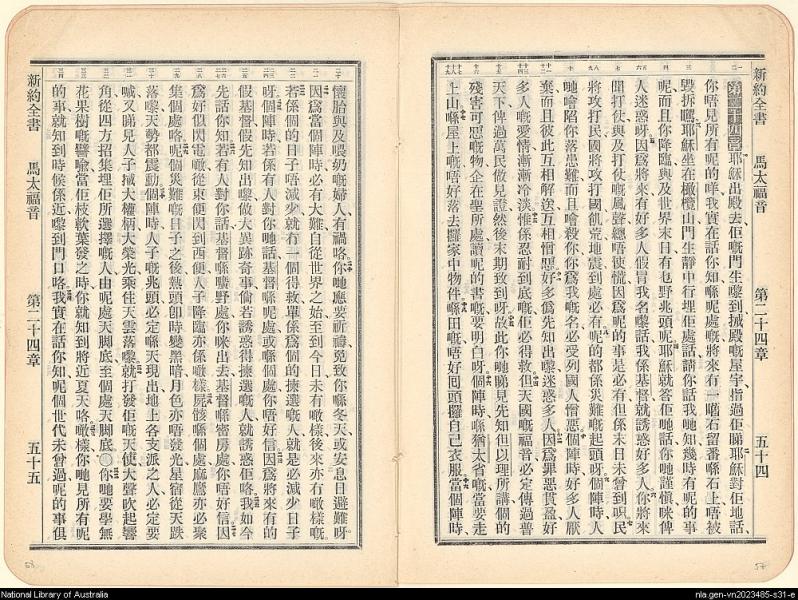 新約全書 馬太福音 第二十四章 五十四
第二十四章耶穌出殿去佢嘅門生嚟到搣殿嘅屋宇指過佢睇耶穌對佢地話
你唔見所有呢的咩我實在話你知喺呢處嘅將來有一嚿石留番喺石上唔被
毀拆嘅耶穌坐在橄欖山門生靜中行埋佢處話請你話我哋知幾時有呢的事
呢而且你降臨與及世界末日有乜野兆頭呢耶穌就答佢哋話你哋謹愼咪俾
人迷惑呀因爲將來有好多人假冒我名嚟話我係基督就誘惑好多人你將來
聞打仗與及打仗嘅風聲總唔使慌因爲呢的事是必有但係末日未曾到呮民
將攻打民國將攻打國飢荒地震到處必有呢的都係災難嘅起頭呀個陣時人
哋會陷你落患難而且會殺你你爲我嘅名必受列國人憎惡個陣時好多人厭
棄而且彼此互相解送互相憎惡好多僞先知出嚟迷惑多人因爲罪惡貫盈好
多人嘅愛情漸漸冷淡惟係忍耐到底嘅佢必得救但天國嘅福音必定傳過普
天下俾過萬民做見證然後末期致到呀故此你哋睇見先知但以理所講個的
殘害可惡嘅物企在聖所處讀呢的書嘅要明白呀個陣時喺猶太省嘅當要走
上山喺屋上嘅唔好落去攞家中物件喺田嘅唔好囘頭攞自己衣服當個陣時
新約全書 馬太福音 第二十四章 五十五
懷胎與及喂奶嘅婦人有禍咯你哋應要祈禱免致你喺冬天或安息日避難呀
因爲當個陣時必有大難自從世界之始至到今日未有噉樣後來亦冇噉樣嘅
若係個的日子唔減少就冇一個得救單係爲個的揀選嘅人就是必減少日子
呀個陣時若係有人對你哋話基督喺呢處或喺個處你唔好信因爲將來有的
假基督假先知出嚟做大異跡奇事倘若誘惑得揀選嘅人就誘惑佢咯我如今
先話你知若有人對你話基督喺曠野處你咪出去基督喺密房處你唔好信因
爲好似閃電噉從東便閃到西便人子降臨亦係噉樣屍骸喺個處麻鷹亦必聚
集個處咯呢個災難嘅日子之後熱頭卽時變黑暗月色亦唔發光星宿從天跌
落嚟天勢都震動個陣時人子嘅兆頭必定喺天現出地上各支派之人必定要
喊又睇見人子揻大權柄大榮光乘住天雲落嚟就打發佢嘅天使大聲吹起響
角從四方招集埋佢所選擇嘅人由呢處天脚底至個處天脚底〇你哋要學無
花果樹嘅譬喩當佢枝軟葉發之時你就知到將近夏天咯噉樣你哋見所有呢
的事就知到時候係近嚟到門口咯我實在話你知呢個世代未曾過呢的事俱
58
57
National Library of Australia
nla.gen-vn2023485-s31-e